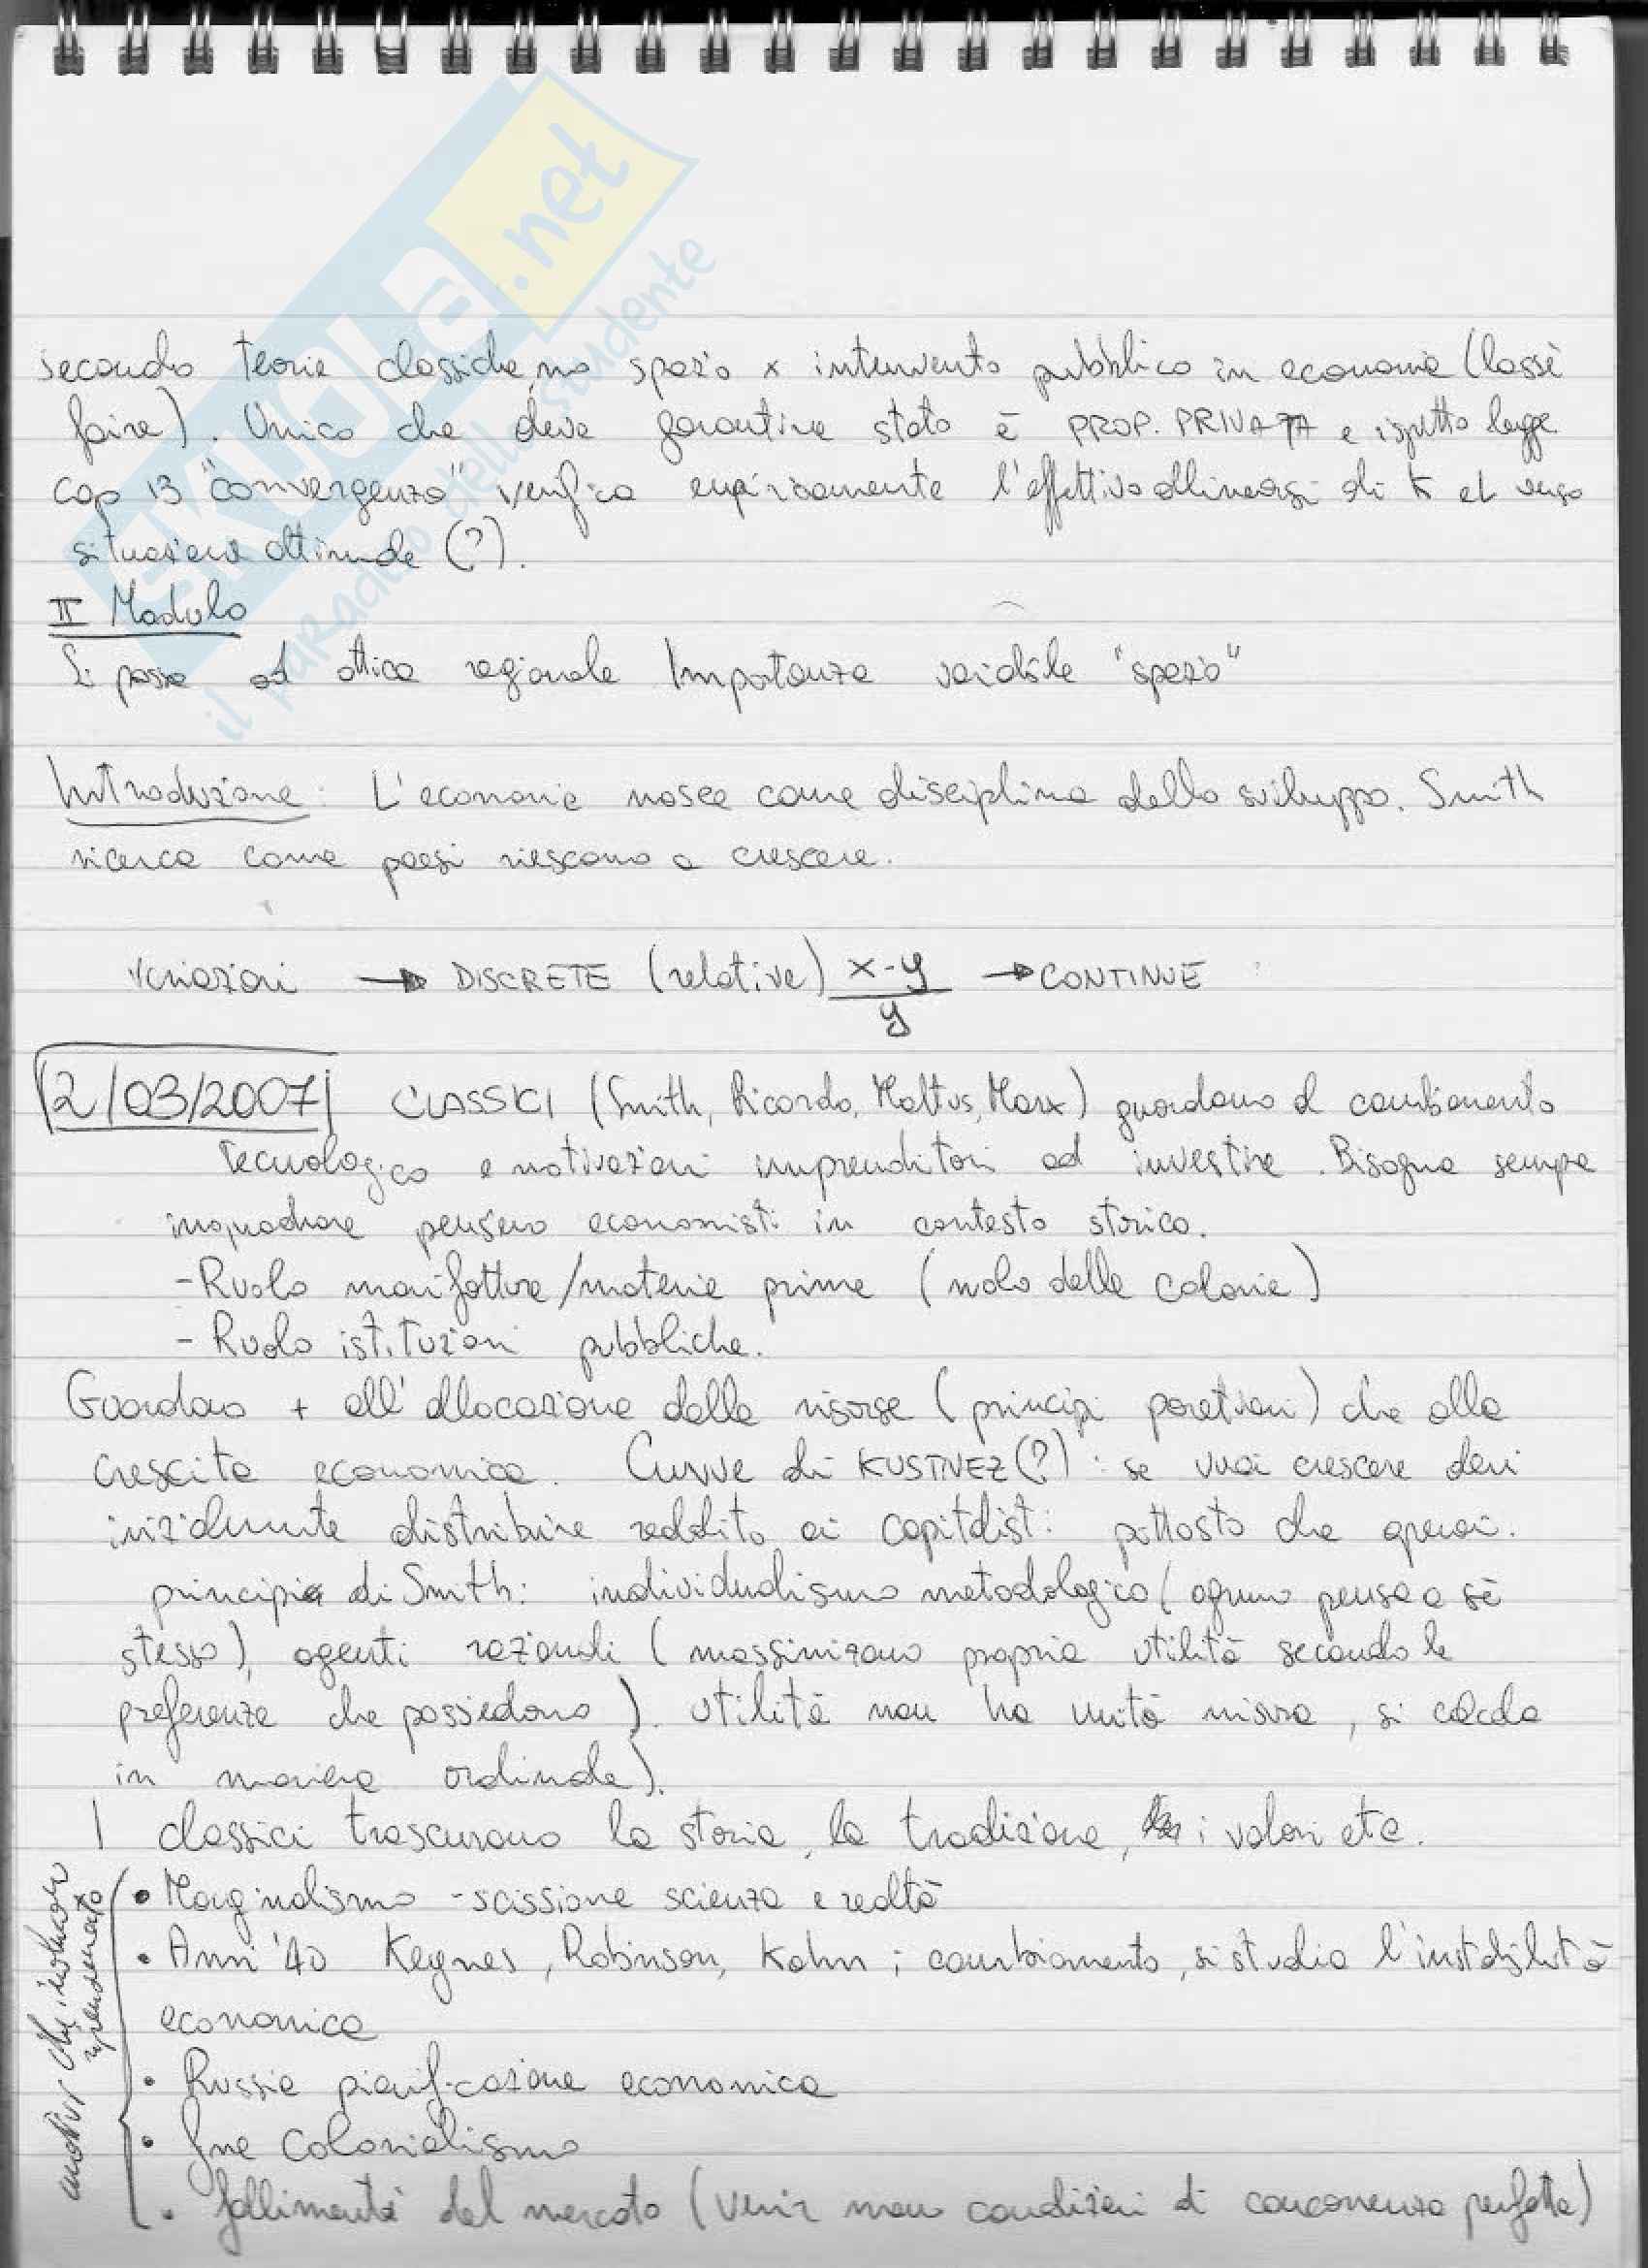 SKUOLA.net
il paradiso dello studente
secondo teorie classiche, no spazio x intervento pubblico in economia (lassè
faire). Unico che deve garantire stato è PROP. PRIVATA e rispetto legge.
Cap 13 "convergenza" verifica empiricamente l'effettivo allinearsi di K e L verso
situazione ottimale (?).
II Modulo
Si passa ad ottica regionale Importanza variabile "spazio"
Introduzione: L'economia nasce come disciplina dello sviluppo. Smith
ricerca come paesi riescono a crescere.
variazioni → DISCRETE (relative) x-y → CONTINUE
y
2/03/2007 CLASSICI (Smith, Ricardo, Maltus, Marx) guardano al cambiamento
tecnologico e motivazioni imprenditori ad investire. Bisogna sempre
inquadrare pensiero economisti in contesto storico.
- Ruolo manifatture/materie prime (ruolo delle colonie)
- Ruolo istituzioni pubbliche.
Guardano + all'allocazione delle risorse (principi paretiani) che alla
crescita economica. Curve di KUSTNEZ(?): se vuoi crescere devi
inizialmente distribuire reddito ai capitalisti pittosto che operai.
principi di Smith: individualismo metodologico (ognuno pensa a sè
stesso), agenti razionali (massimizzano propria utilità secondo le
preferenze che possiedono). utilità non ha unità misura, si calcola
in maniera ordinale).
I classici trascurano la storia, la tradizione, i valori etc.
motivi che involucrano
• Marginalismo - scissione scienza e realtà
• Anni '40 Keynes, Robinson, Kahn; cambiamento, si studia l'instabilità
economica
• Russia pianificazione economica
• fine colonialismo
• fallimenti del mercato (venir meno condizioni di concorrenza perfetta)